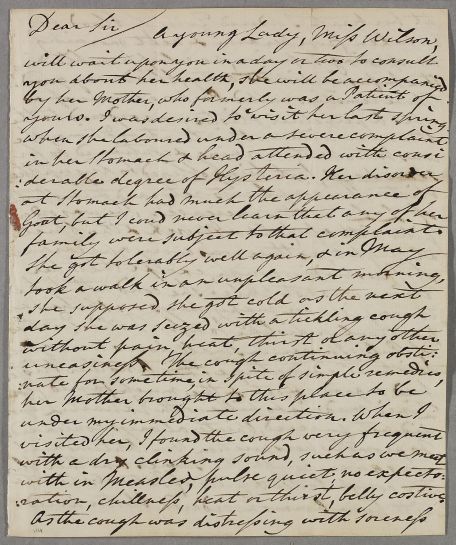 Dear Sir
A young Lady, Miss Wilson,
will wait upon you in a day or two to consult
you about her health, she will be accompanied
by her Mother, who formerly was a Patient of
yours. I was desired to visit her last spring
when she laboured under a severe complaint
in her stomach & head attended with consi
:derable degree of Hysteria. Her disorder
at stomach had much the appearance of
Gout, but I coud never learn that any of her
family were subject to that complaint.
She got tolerably well again, & in May
took a walk in an unpleasant morning,
she supposed she got cold as the next
day she was seized with a tickling cough
without pain, heat thirst or any other
uneasiness. The cough continuing obsti:
:nate for some time in spite of simple remedies,
her Mother brought to this place to be
under my immediate direction. When I
visited her, I found the cough very frequent
with a dry clinking sound, such as we meet
with in Measles, pulse quiet, no expecto:
:ration, chillness, heat or thirst, belly costive
As the cough was distressing with soreness